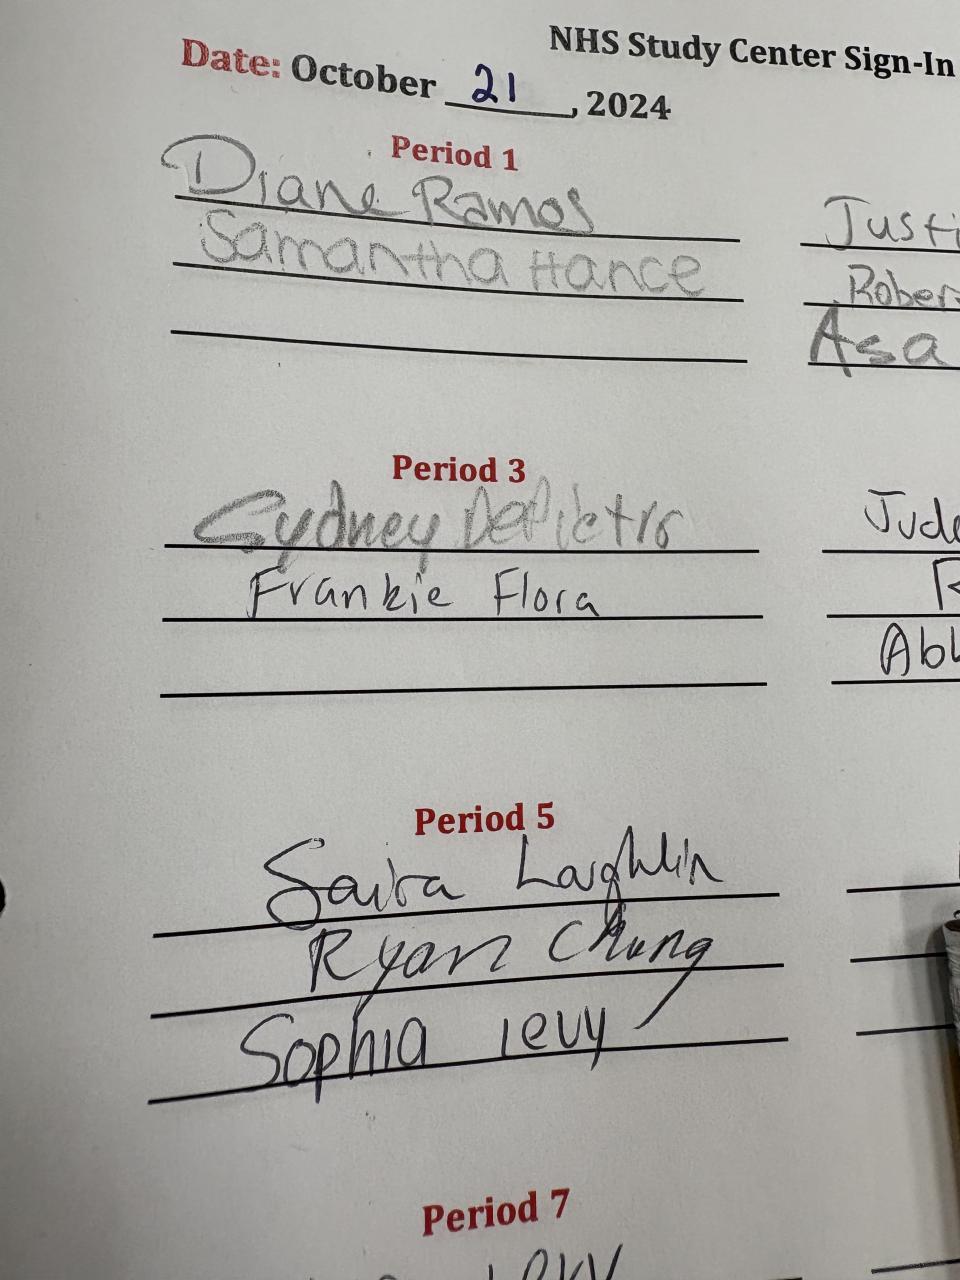 NHS Study Center Sign-In
Date: October 21, 2024
Period 1
Diane Ramos
Samantha Hance
Justi
Rober
Asa
Period 3
Sydney DePietro
Frankie Flora
Jude
R
Abb
Period 5
Saira Laughlin
Ryan Chung
Sophia levy
Period 7